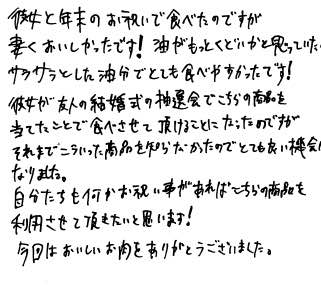 彼女と年末のお祝いで食べたのですが
凄くおいしかったです！油がもっとくどいかと思っていた
サラサラとした油分でとても食べやすかったです！
彼女が友人の結婚式の抽選会でこちらの商品を
当てたことで食べさせて頂けることになったのですが
それまでこういった商品を知らなかったのでとても良い機会に
なりました。
自分たちも何かお祝い事があればこちらの商品を
利用させて頂きたいと思います！
今回はおいしいお肉をありがとうございました。